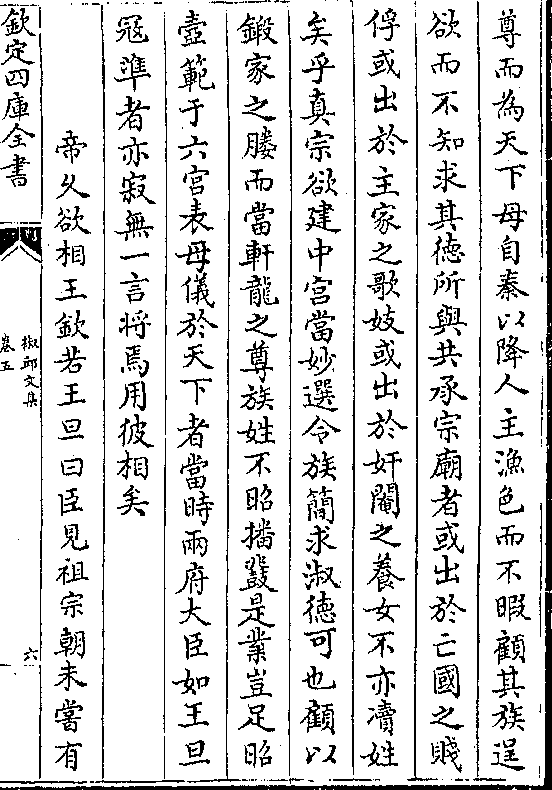 尊而為天下母自秦以降人主漁色而不暇顧其族逞
欲而不知求其徳所與共承宗廟者或出於亡國之賤
俘或出於主家之歌妓或出於奸閹之養女不亦凟姓
矣乎真宗欲建中宮當妙選令族簡求淑徳可也顧以
鍛家之媵而當軒龍之尊族姓不昭播鼗是業豈足昭
壼範于六宮表母儀於天下者當時兩府大臣如王旦
冦準者亦寂無一言将焉用彼相矣
帝乆欲相王欽若王旦曰臣見祖宗朝未嘗有
欽定四庫全書
椒邱文集
卷五
六